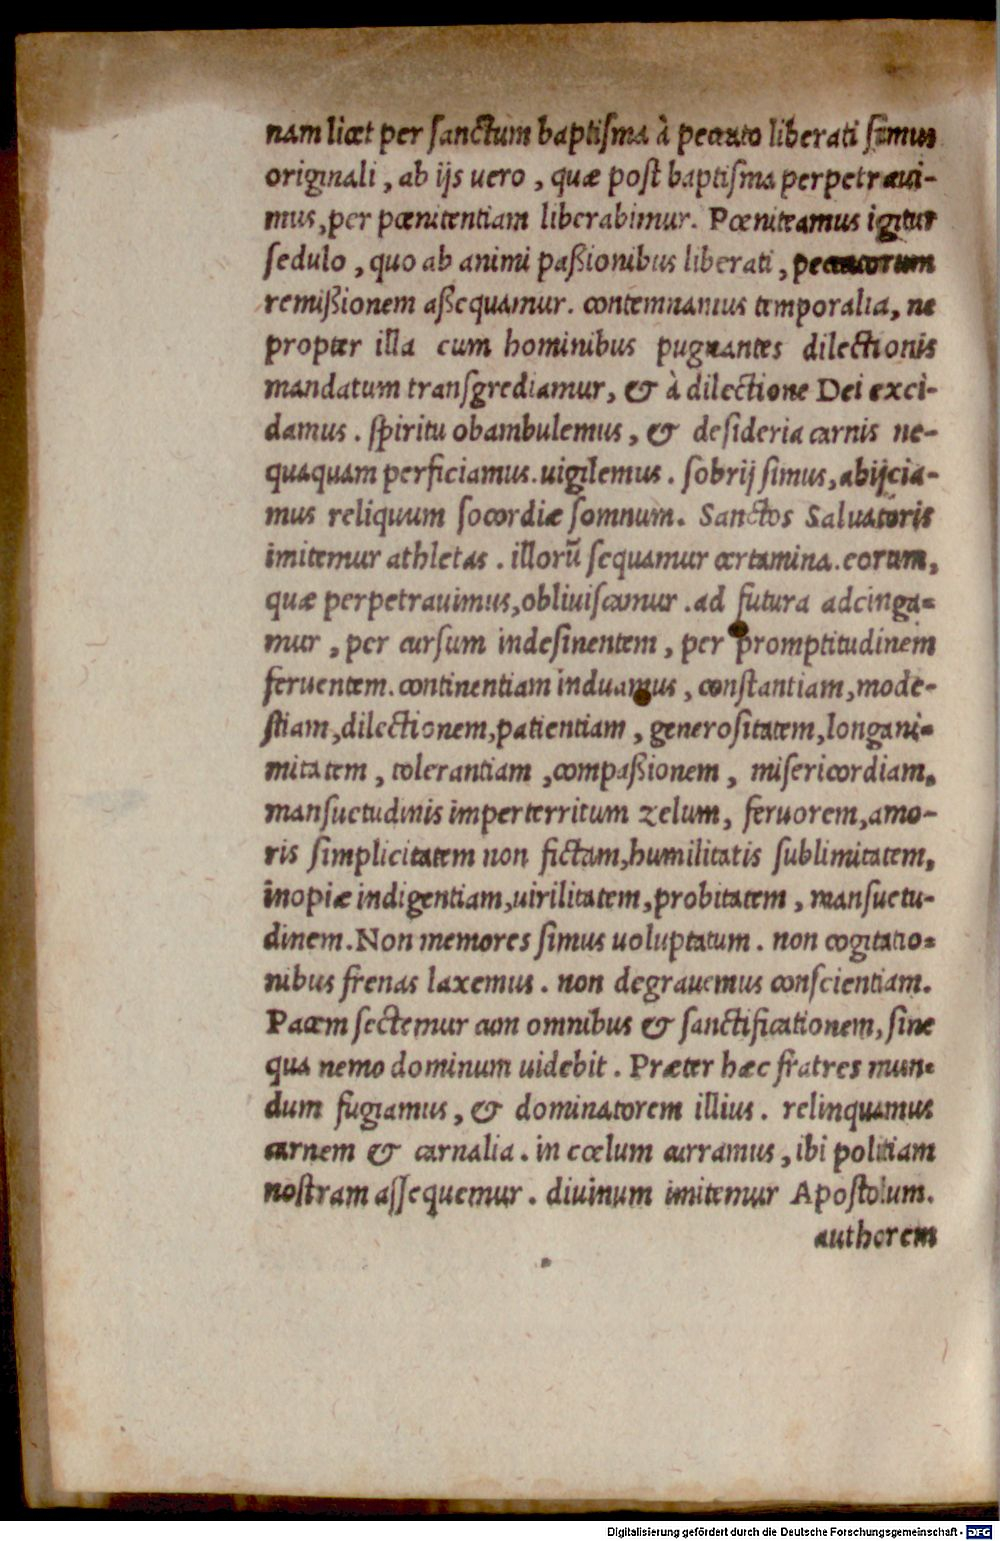 nam licet per sanctum baptisma à peccato liberati simus
originali, ab ijs uero, quæ post baptisma perpetraui-
mus, per pœnitentiam liberabimur. Pœniteamus igitur
sedulo, quo ab animi paßionibus liberati, peccatorum
remißionem aßequamur. contemnamus temporalia, ne
propter illa cum hominibus pugnantes dilectionis
mandatum transgrediamur, & à dilectione Dei exci-
damus. spiritu obambulemus, & desideria carnis ne-
quaquam perficiamus. uigilemus. sobrij simus, abijcia-
mus reliquum socordiæ somnum. Sanctos Saluatoris
imitemur athletas. illorũ sequamur certamina. eorum,
quæ perpetrauimus, obliuiscamur. ad futura adcinga-
mur, per cursum indesinentem, per promptitudinem
feruentem. continentiam induamus, constantiam, mode-
stiam, dilectionem, patientiam, generositatem, longani-
mitatem, tolerantiam, compaßionem, misericordiam,
mansuetudinis imperterritum zelum, feruorem, amo-
ris simplicitatem non fictam, humilitatis sublimitatem,
inopiæ indigentiam, uirilitatem, probitatem, mansuetu-
dinem. Non memores simus uoluptatum. non cogitatio-
nibus frenas laxemus. non degrauemus conscientiam.
Pacem sectemur cum omnibus & sanctificationem, sine
qua nemo dominum uidebit. Præter hæc fratres mun-
dum fugiamus, & dominatorem illius. relinquamus
carnem & carnalia. in cœlum curramus, ibi politiam
nostram assequemur. diuinum imitemur Apostolum.
authorem
Digitalisierung gefördert durch die Deutsche Forschungsgemeinschaft - DFG